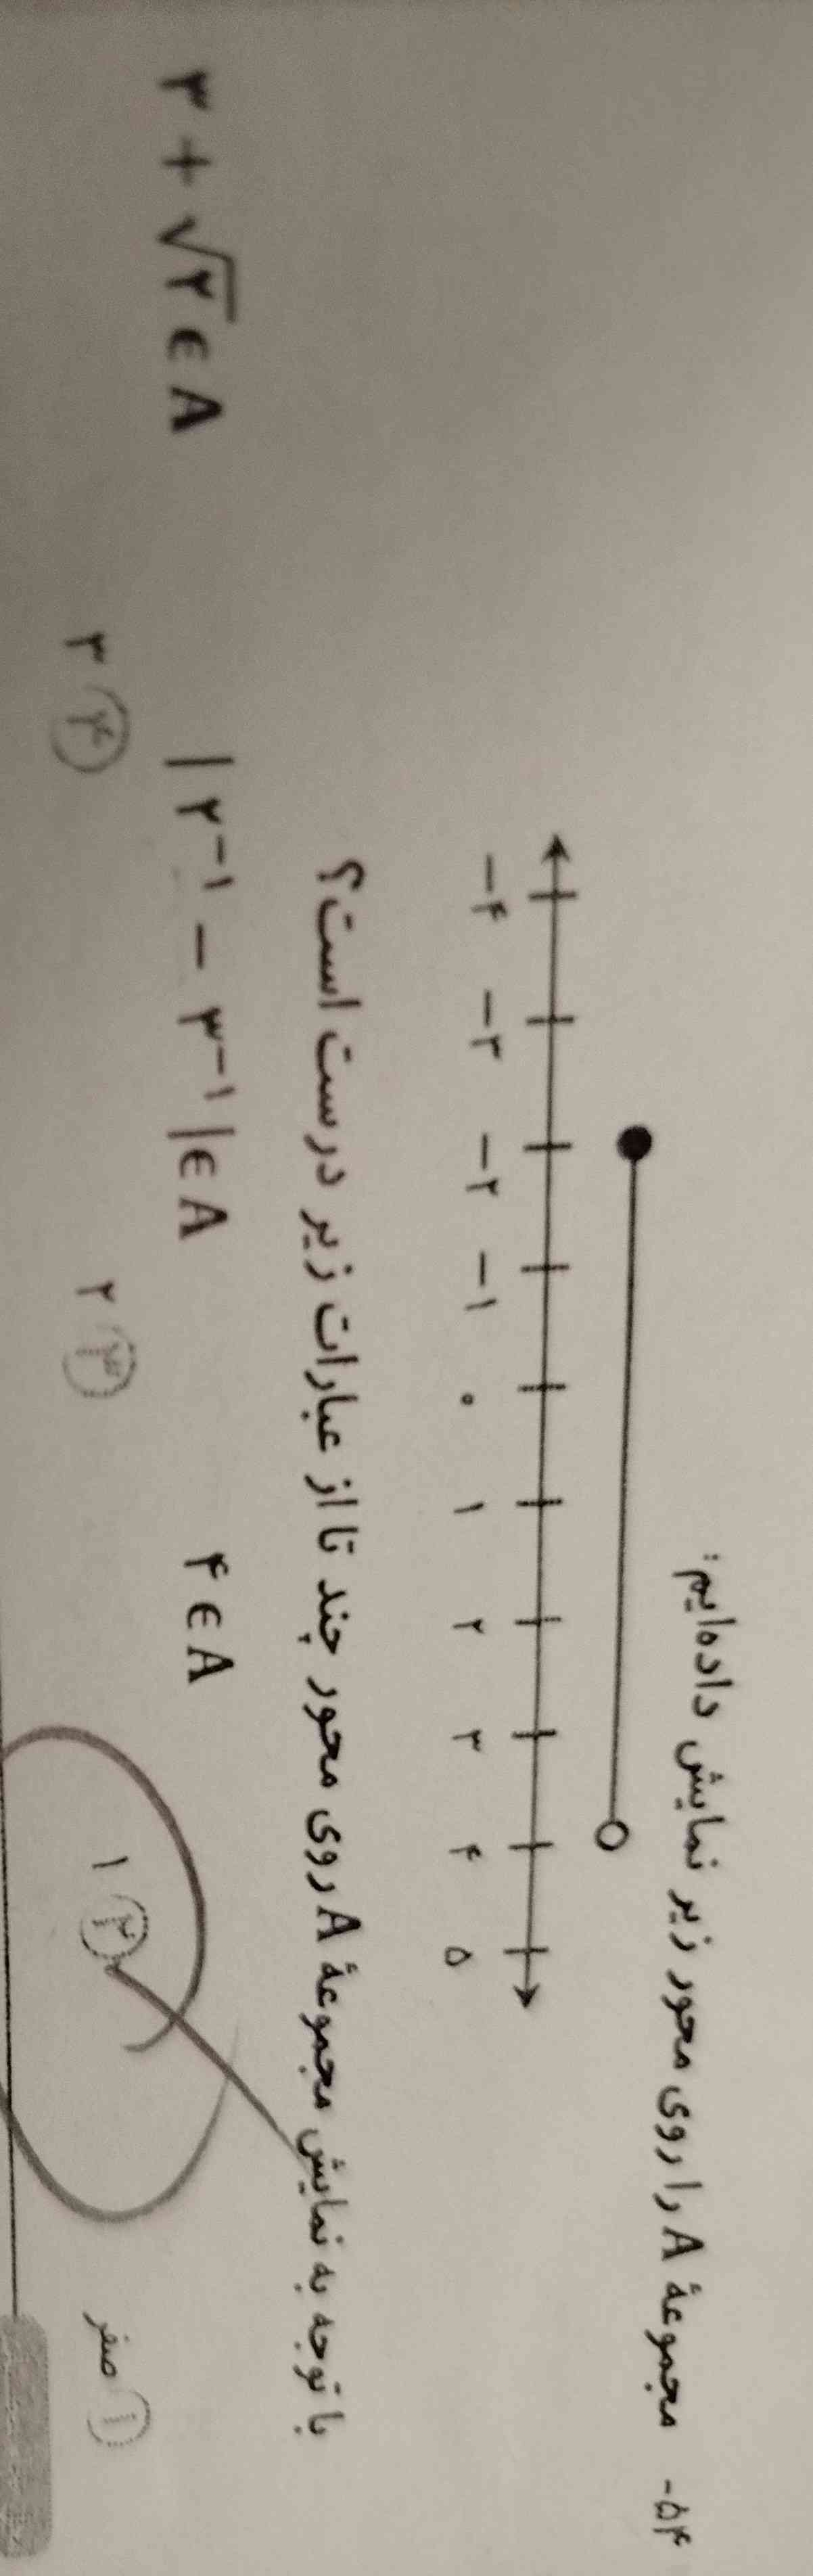 ۵۴- مجموعهٔ A را روی محور زیر نمایش داده‌ایم:
-۴ -۳ -۲ -۱ ۰ ۱ ۲ ۳ ۴ ۵
با توجه به نمایش مجموعهٔ A روی محور چند تا از عبارات زیر درست است؟
۳ + √۲ ∈ A |۲⁻¹ - ۳⁻¹| ∈ A ۴ ∈ A
۱) صفر ۲) ۱ ۳) ۲ ۴) ۳